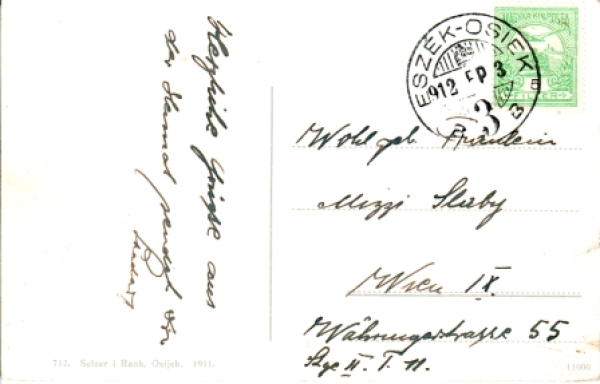 Herzliche Grüsse aus
der Heimat sendet Dir
ESZÉK-OSIEK
912
3
B
MAGYAR KIR. POSTA
FILLÉR
Wohlgeb. Fräulein
Mizzi Slaby
Wien IX.
Währingerstrasse 55
Stge II. T. 11.
712. Selzer i Rank, Osijek. 1911.
11000